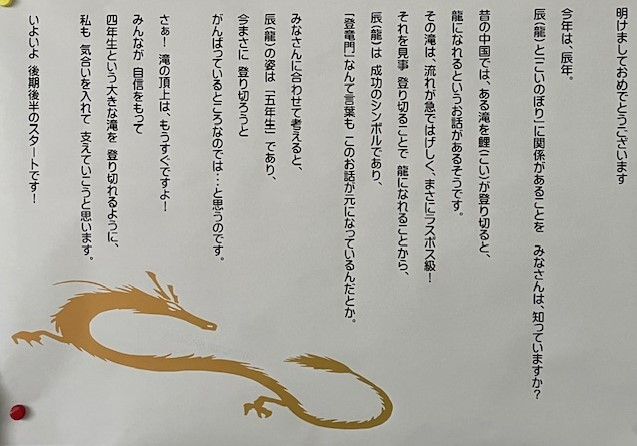 明けましておめでとうございます
今年は、辰年。
辰(龍)と「こいのぼり」に関係があることを　みなさんは、知っていますか？
昔の中国では、ある滝を鯉(こい)が登り切ると、
龍になれるというお話があるそうです。
その滝は、流れが急ではげしく、まさにラスボス級！
それを見事 登り切ることで 龍になれることから、
辰(龍)は 成功のシンボルであり、
「登竜門」なんて言葉も このお話が元になっているんだとか。
みなさんに合わせて考えると、
辰(龍)の姿は「五年生」であり、
今まさに 登り切ろうと
がんばっているところなのでは…と思うのです。
さぁ！ 滝の頂上は、もうすぐですよ！
みんなが 自信をもって
四年生という大きな滝を 登り切れるように、
私も 気合いを入れて 支えていこうと思います。
いよいよ 後期後半のスタートです！